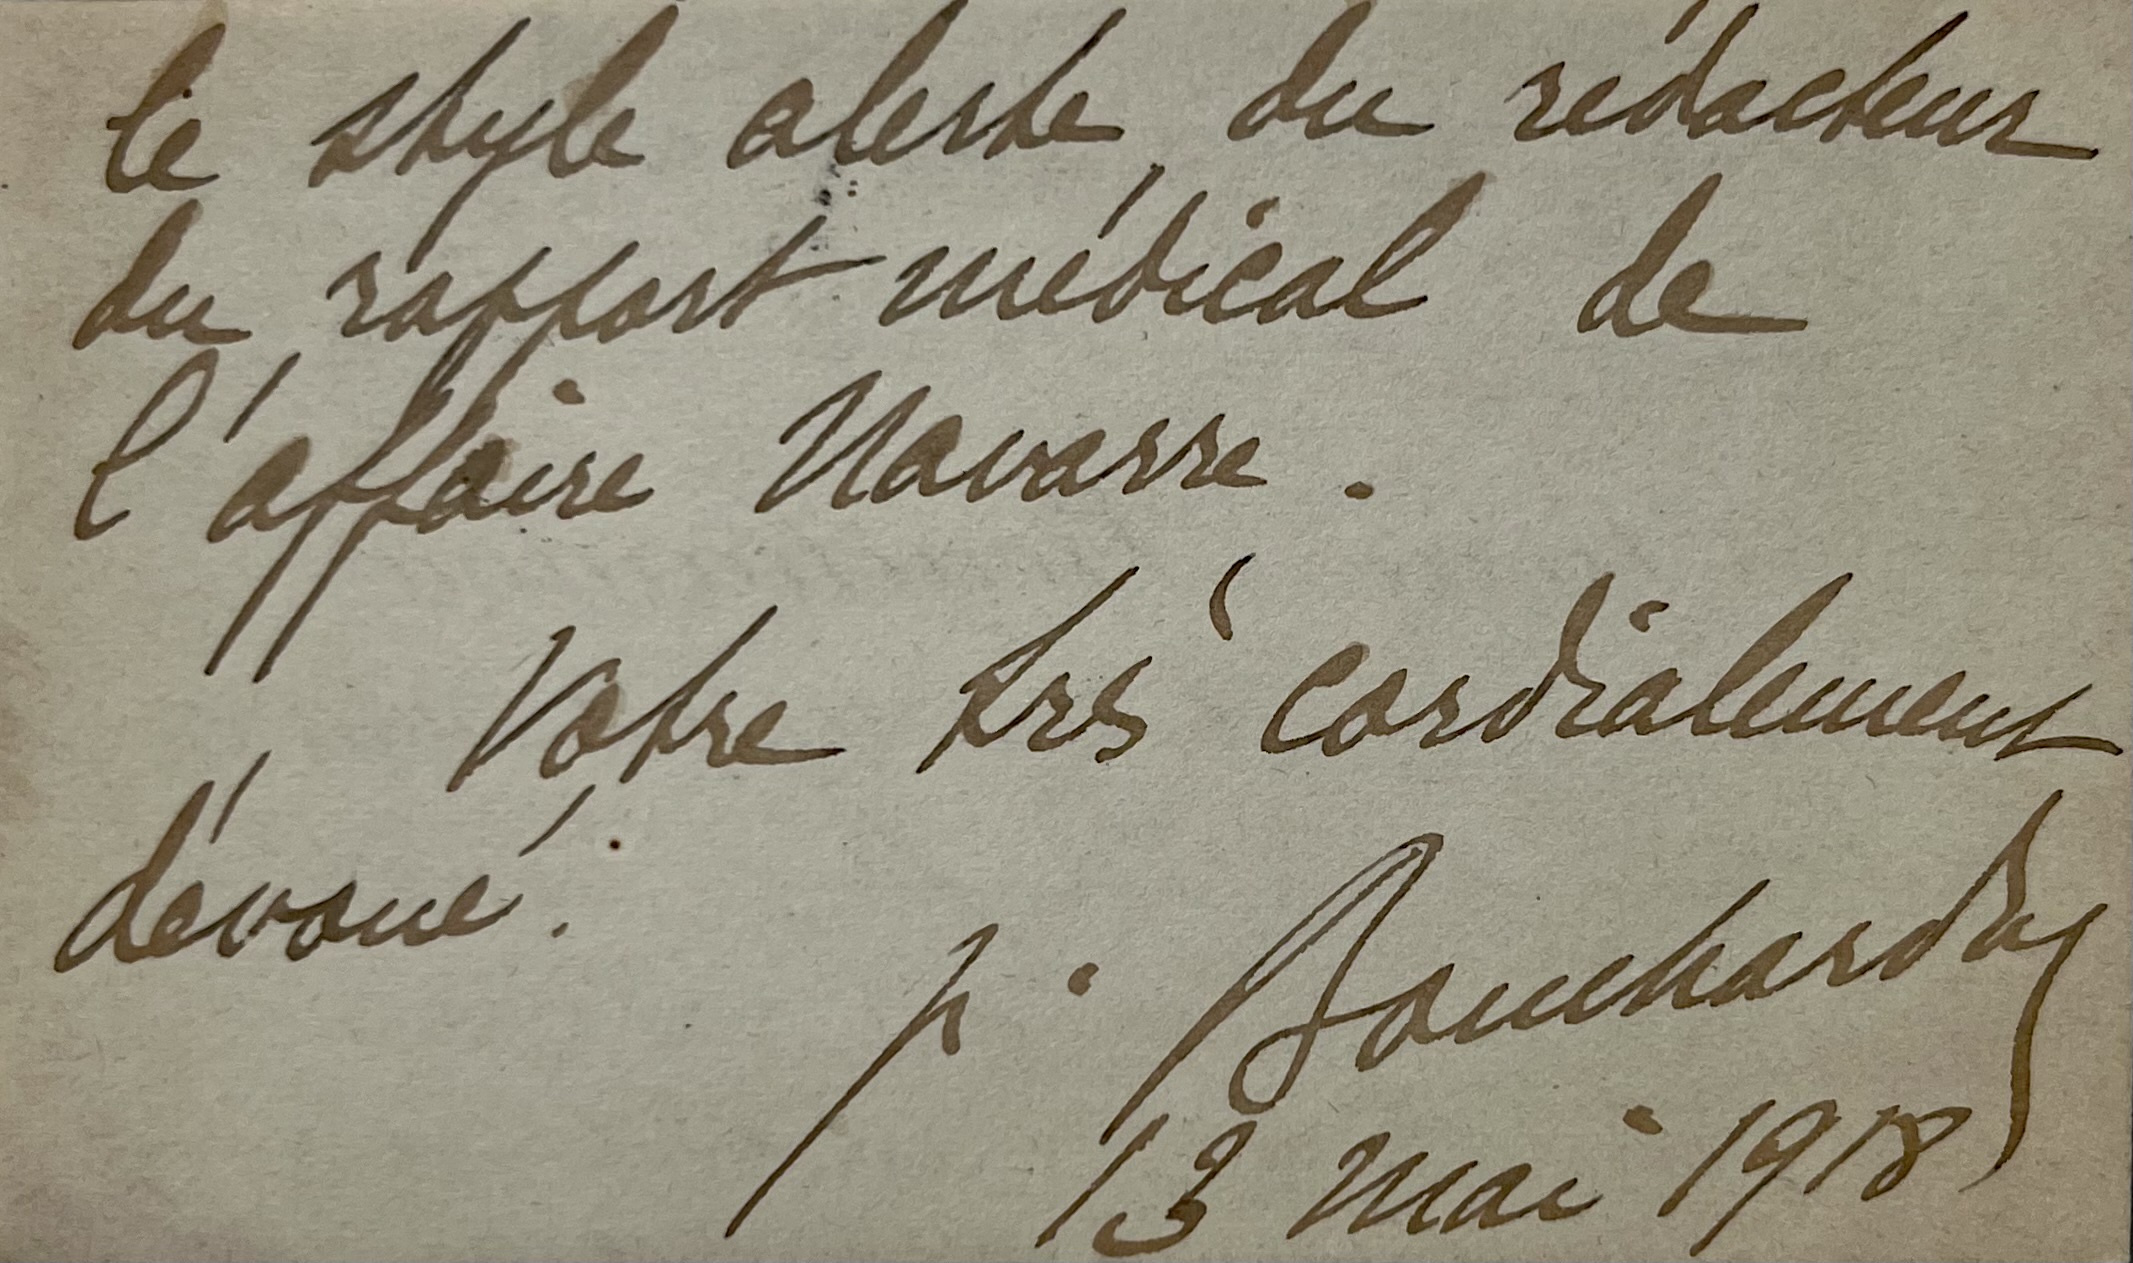 le style alerte du rédacteur
du rapport médical de
l'affaire Navarre.
Votre très cordialement
dévoué.
P. Bouchardon
13 mai 1918